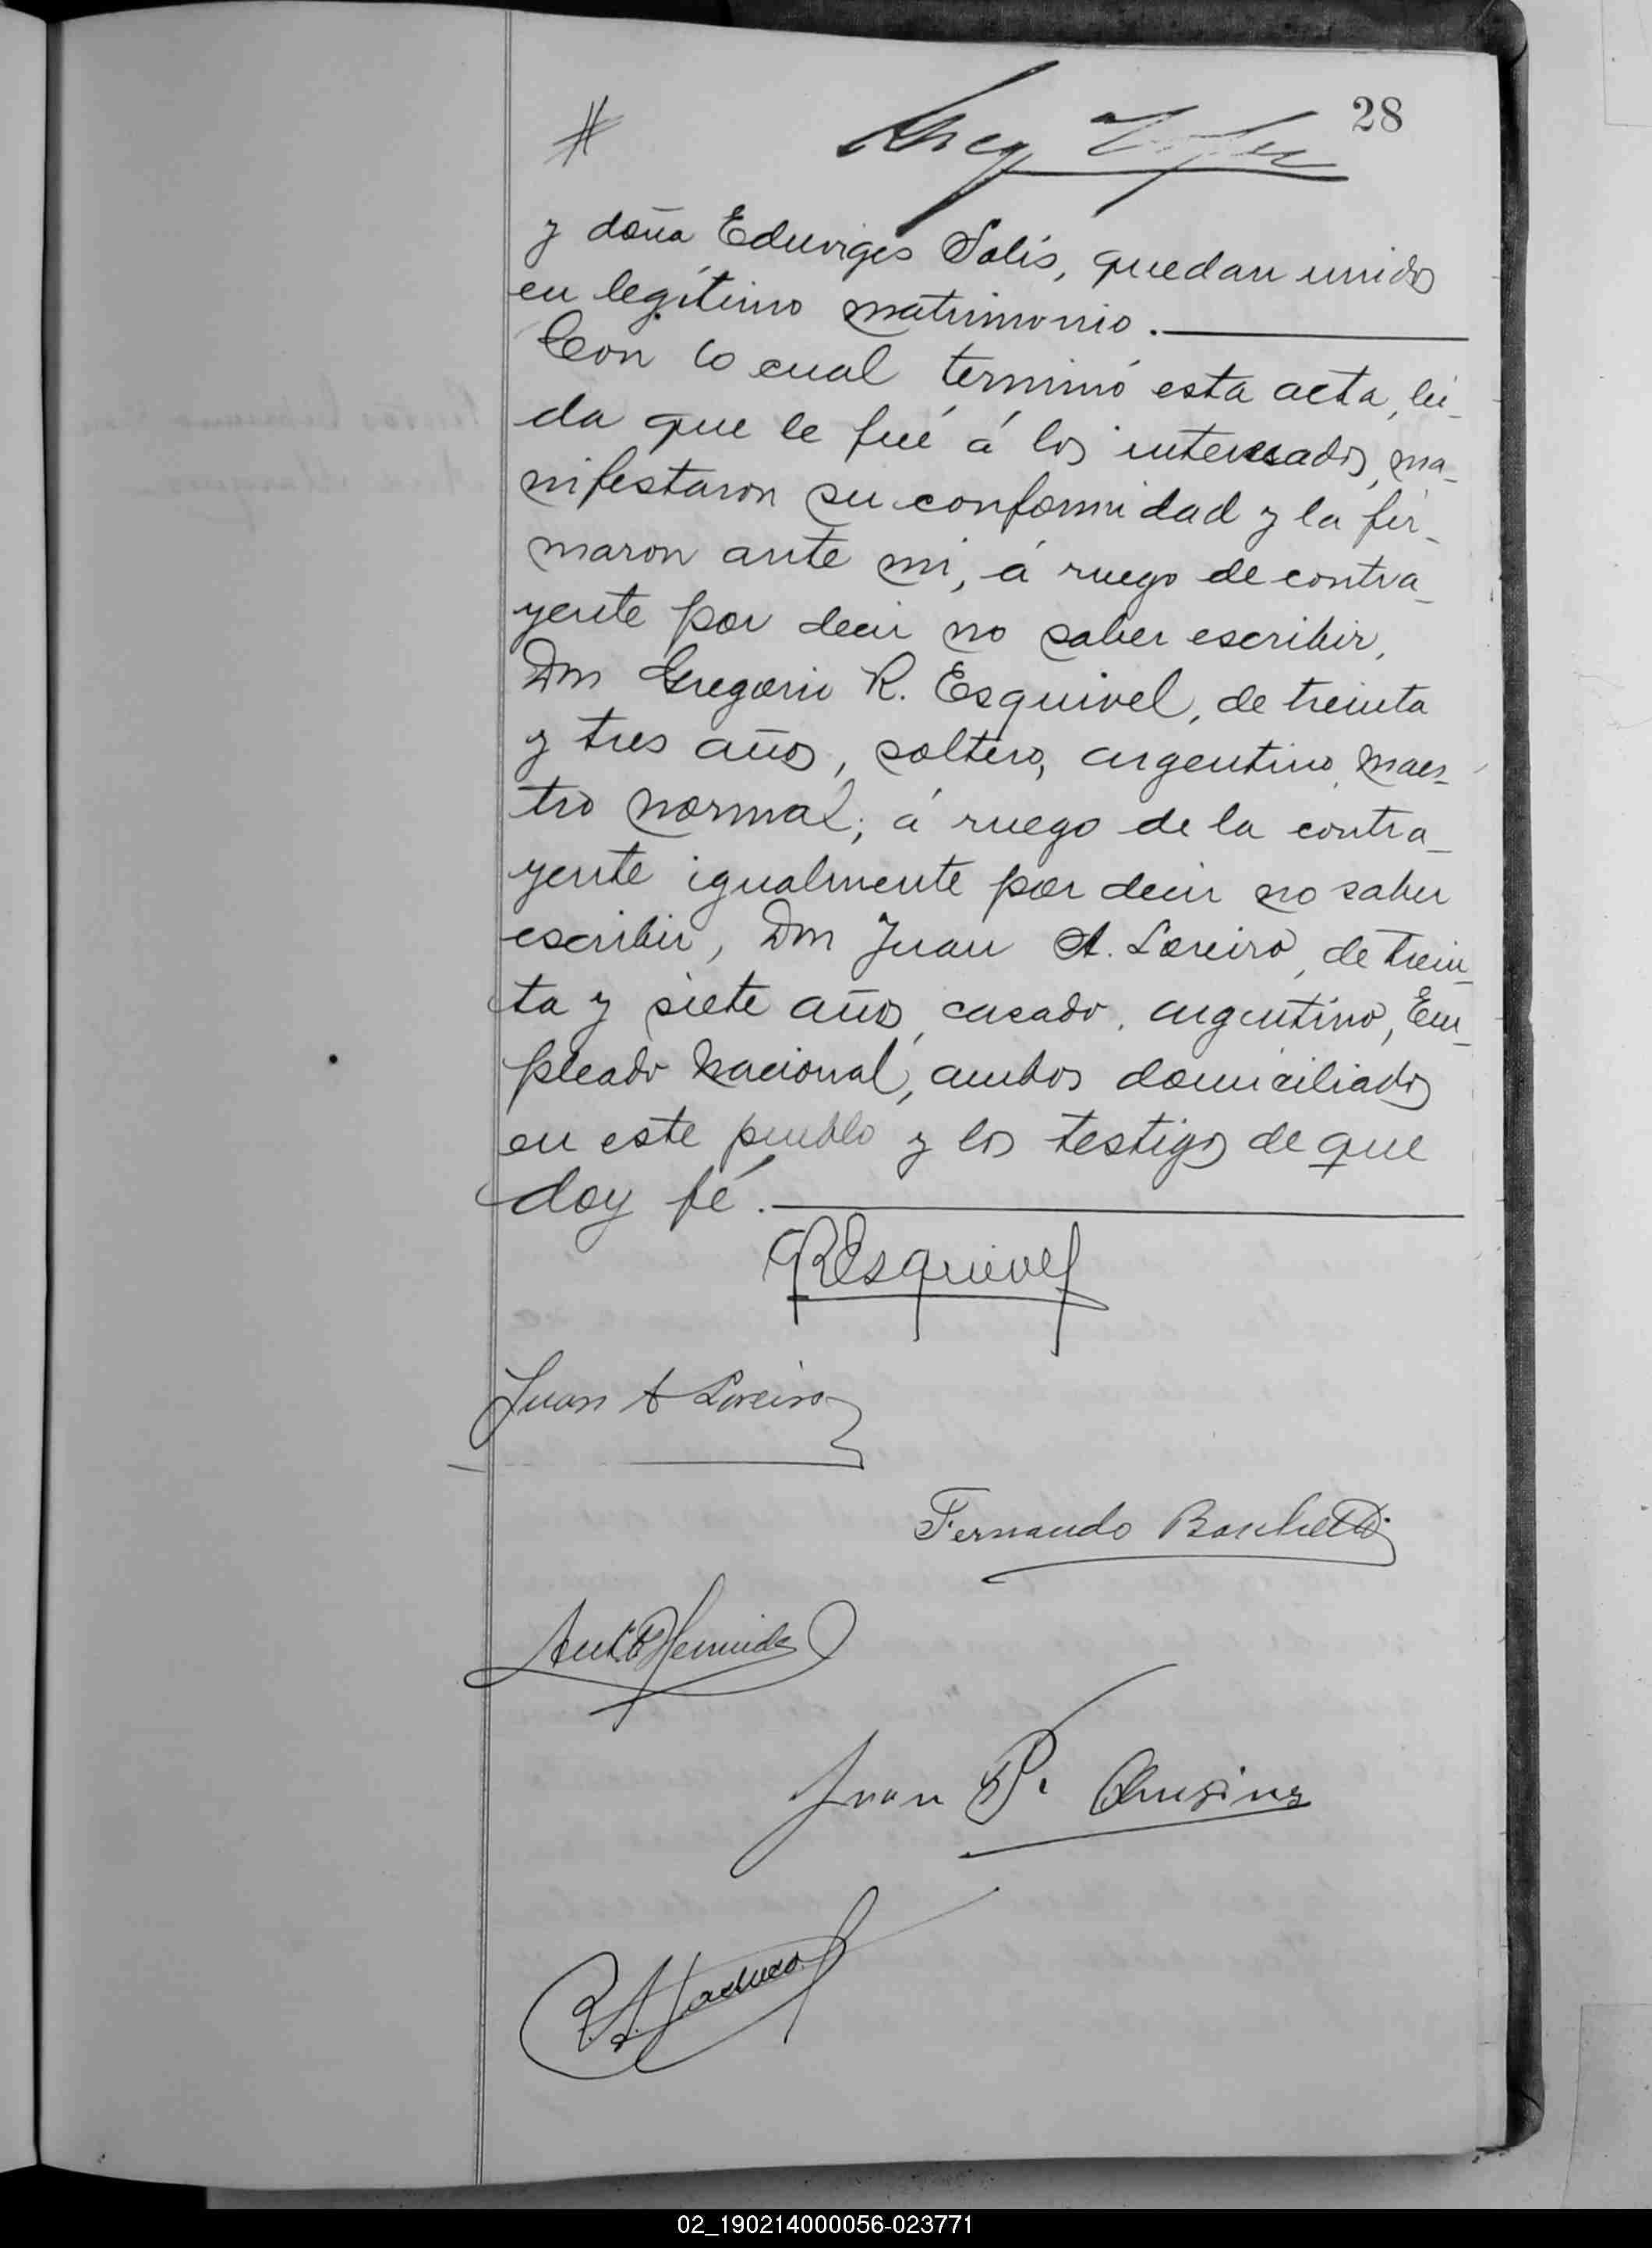 28
#
y doña Eduviges Solís, quedan unidos
en legítimo matrimonio.
Con lo cual terminó esta acta, leí-
da que le fué á los interesados, ma-
nifestaron su conformidad y la fir-
maron ante mi, á ruego de contra-
yente por decir no saber escribir,
Don Gregorio R. Esquivel, de treinta
y tres años, soltero, argentino, maes-
tro normal; á ruego de la contra-
yente igualmente por decir no saber
escribir, Don Juan A. Loreiro, de trein-
ta y siete años, casado, argentino, Em-
pleado Nacional, ambos domiciliados
en este pueblo y los testigos de que
doy fé.
GREsquivel
Juan A Loreiro
Fernando
Juan P.
02_190214000056-023771